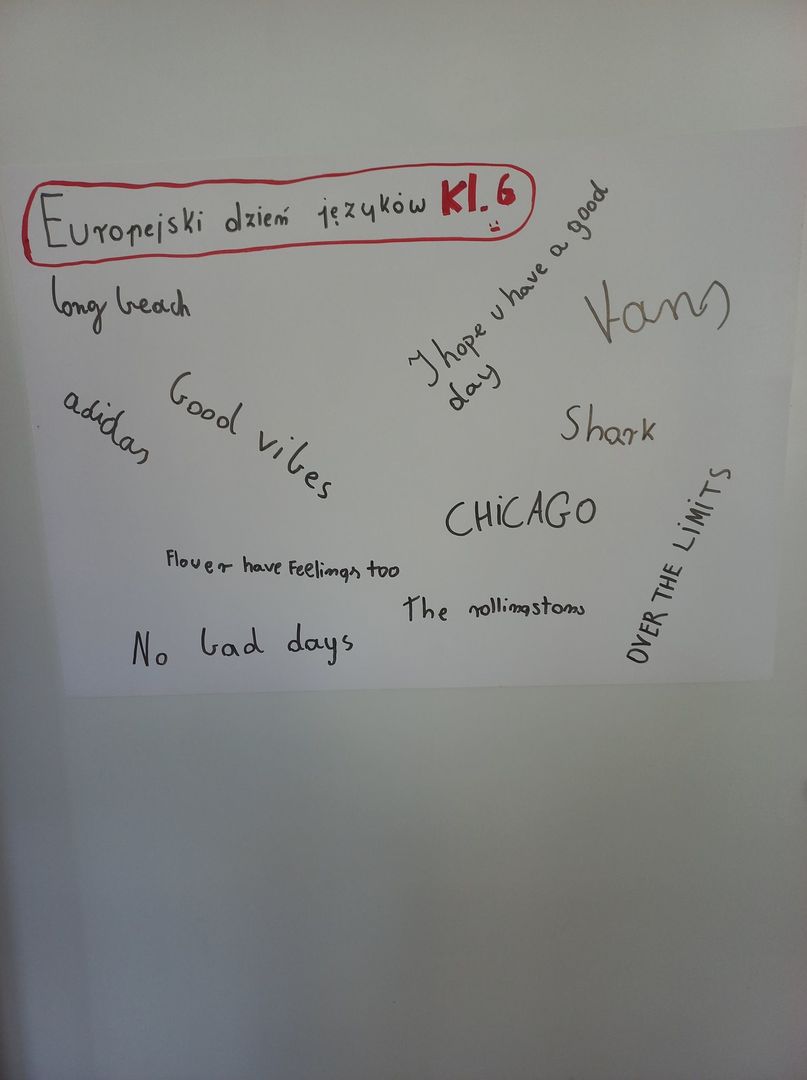 Europejski dzień języków Kl. 6
long beach
I hope u have a good
day
Vans
adidas
Good vibes
Shark
CHiCAGO
OVER THE LiMiTS
Flover have Feelings too
The rollingstons
No bad days